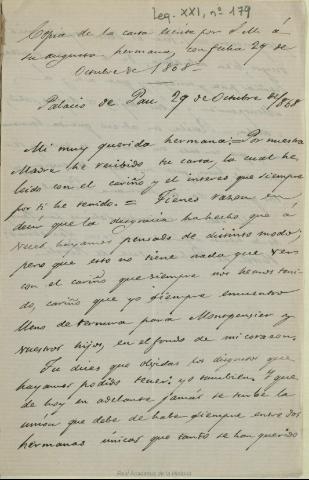 Leg. XXI, nº 179
Copia de la carta escrita por S.M. á
su augusta hermana, con fecha 29 de
Octubre de 1868
Palacio de Pau 29 de Octubre de 1868
Mi muy querida hermana: = Por nuestra
Madre he recibido tu carta, la cual he
leido con el cariño y el interes que siempre
por ti he tenido. = Tienes razon en
decir que la desgracia ha hecho que á
veces hayamos pensado de distinto modo;
pero que esto no tiene nada que ver
con el cariño que siempre nos hemos teni-
do, cariño que yo siempre encuentro
lleno de ternura para Montpensier y
vuestros hijos, en el fondo de mi corazon.
Tu dices que olvidas los disgustos que
hayamos podido tener: yo tambien. Y que
de hoy en adelante jamás se turbe la
union que debe de haber siempre entre dos
hermanas únicas que tanto se han querido
Real Academia de la Historia